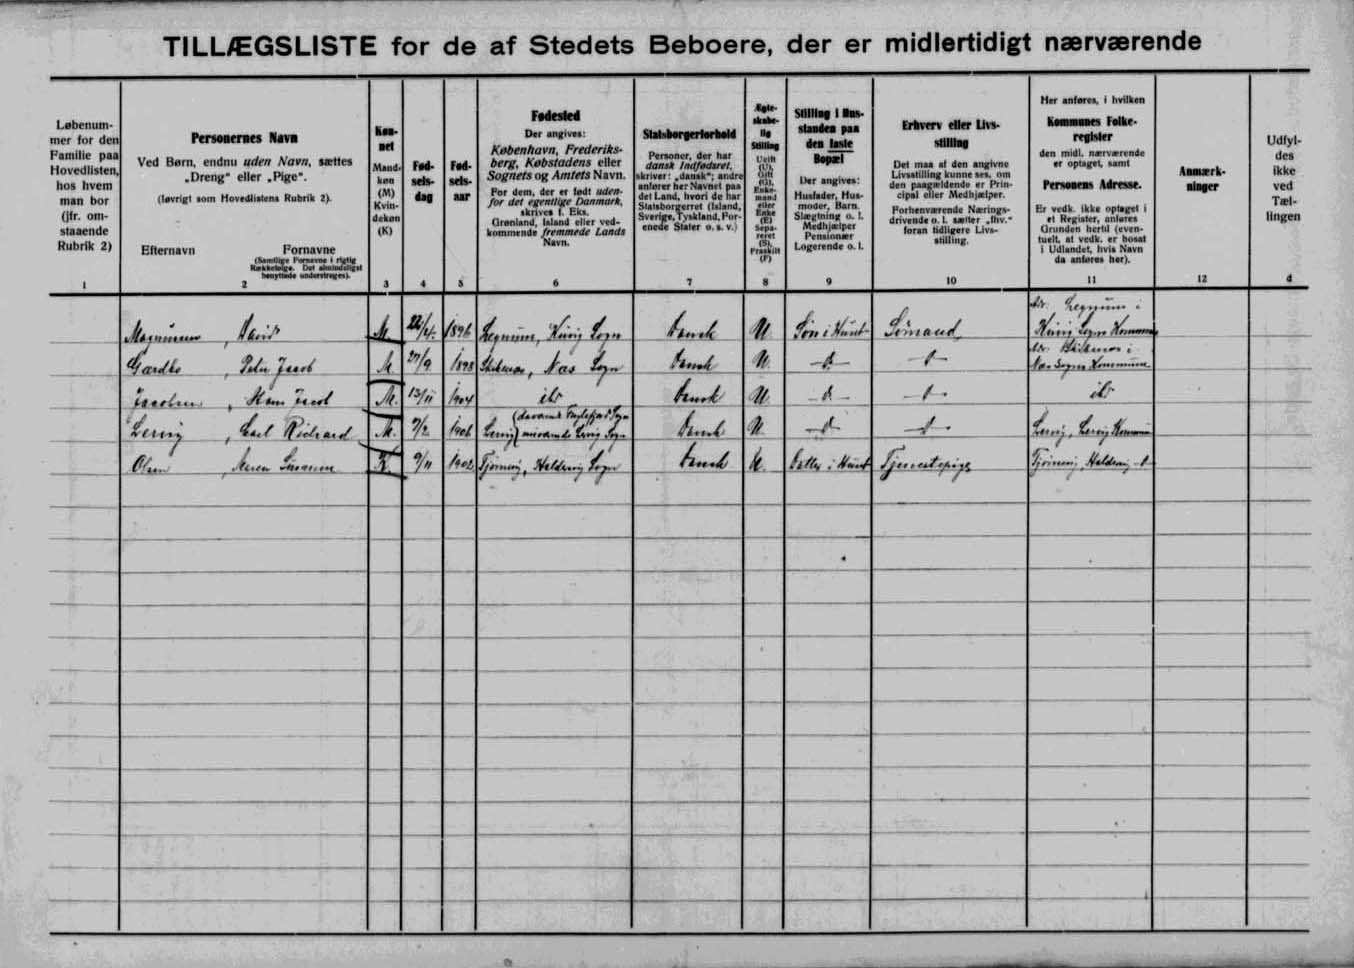 TILLÆGSLISTE for de af Stedets Beboere, der er midlertidigt nærværende
Løbenum-
mer for den
Familie paa
Hovedlisten,
hos hvem
man bor
(jfr. om-
staaende
Rubrik 2)
1
Personernes Navn
Ved Børn, endnu uden Navn, sættes
„Dreng" eller „Pige".
(Iøvrigt som Hovedlistens Rubrik 2).
Efternavn
Fornavne
(Samtlige Fornavne i rigtig
Rækkefølge. Det almindeligst
benyttede understreges).
2
Køn-
net
Mand-
køn
(M)
Kvin-
dekøn
(K)
3
Fød-
sels-
dag
4
Fød-
sels-
aar
5
Fødested
Der angives:
København, Frederiks-
berg, Købstadens eller
Sognets og Amtets Navn.
For dem, der er født uden-
for det egentlige Danmark,
skrives f. Eks.
Grønland, Island eller ved-
kommende fremmede Lands
Navn.
6
Statsborgerforhold
Personer, der har
dansk Indfødsret,
skriver: „dansk"; andre
anfører her Navnet paa
det Land, hvori de har
Statsborgerret (Island,
Sverige, Tyskland, For-
enede Stater o. s. v.)
7
Ægte-
skabe-
lig
Stilling
Ugift
(U),
Gift
(G),
Enke-
mand
eller
Enke
(E)
Sepa-
reret
(S),
Fraskilt
(F)
8
Stilling i Hus-
standen paa
den faste
Bopæl
Der angives:
Husfader, Hus-
moder, Barn.
Slægtning o. l.
Medhjælper
Pensionær
Logerende o. l.
9
Erhverv eller Livs-
stilling
Det maa af den angivne
Livsstilling kunne ses, om
den paagældende er Prin-
cipal eller Medhjælper.
Forhenværende Nærings-
drivende o. l. sætter „fhv."
foran tidligere Livs-
stilling.
10
Her anføres, i hvilken
Kommunes Folke-
register
den midl. nærværende
er optaget, samt
Personens Adresse.
Er vedk. ikke optaget i
et Register, anføres
Grunden hertil (even-
tuelt, at vedk. er bosat
i Udlandet, hvis Navn
da anføres her).
11
Anmærk-
ninger
12
Udfyl-
des
ikke
ved
Tæl-
lingen
d
David M. 22/4. 1896 Sogn Dansk U. Søn i Huset Sømand
Peter Jacob M. 27/9. 1898 Næs Sogn Dansk U. Næs Sogns Kommune
Jacobsen, Hans Jacob M. 13/11 1904 Dansk U.
Carl Richard M. 7/2. 1906 Dansk U.
Olsen 9/11 1902 Sogn Dansk U. Datter i Huset Tjenestepige